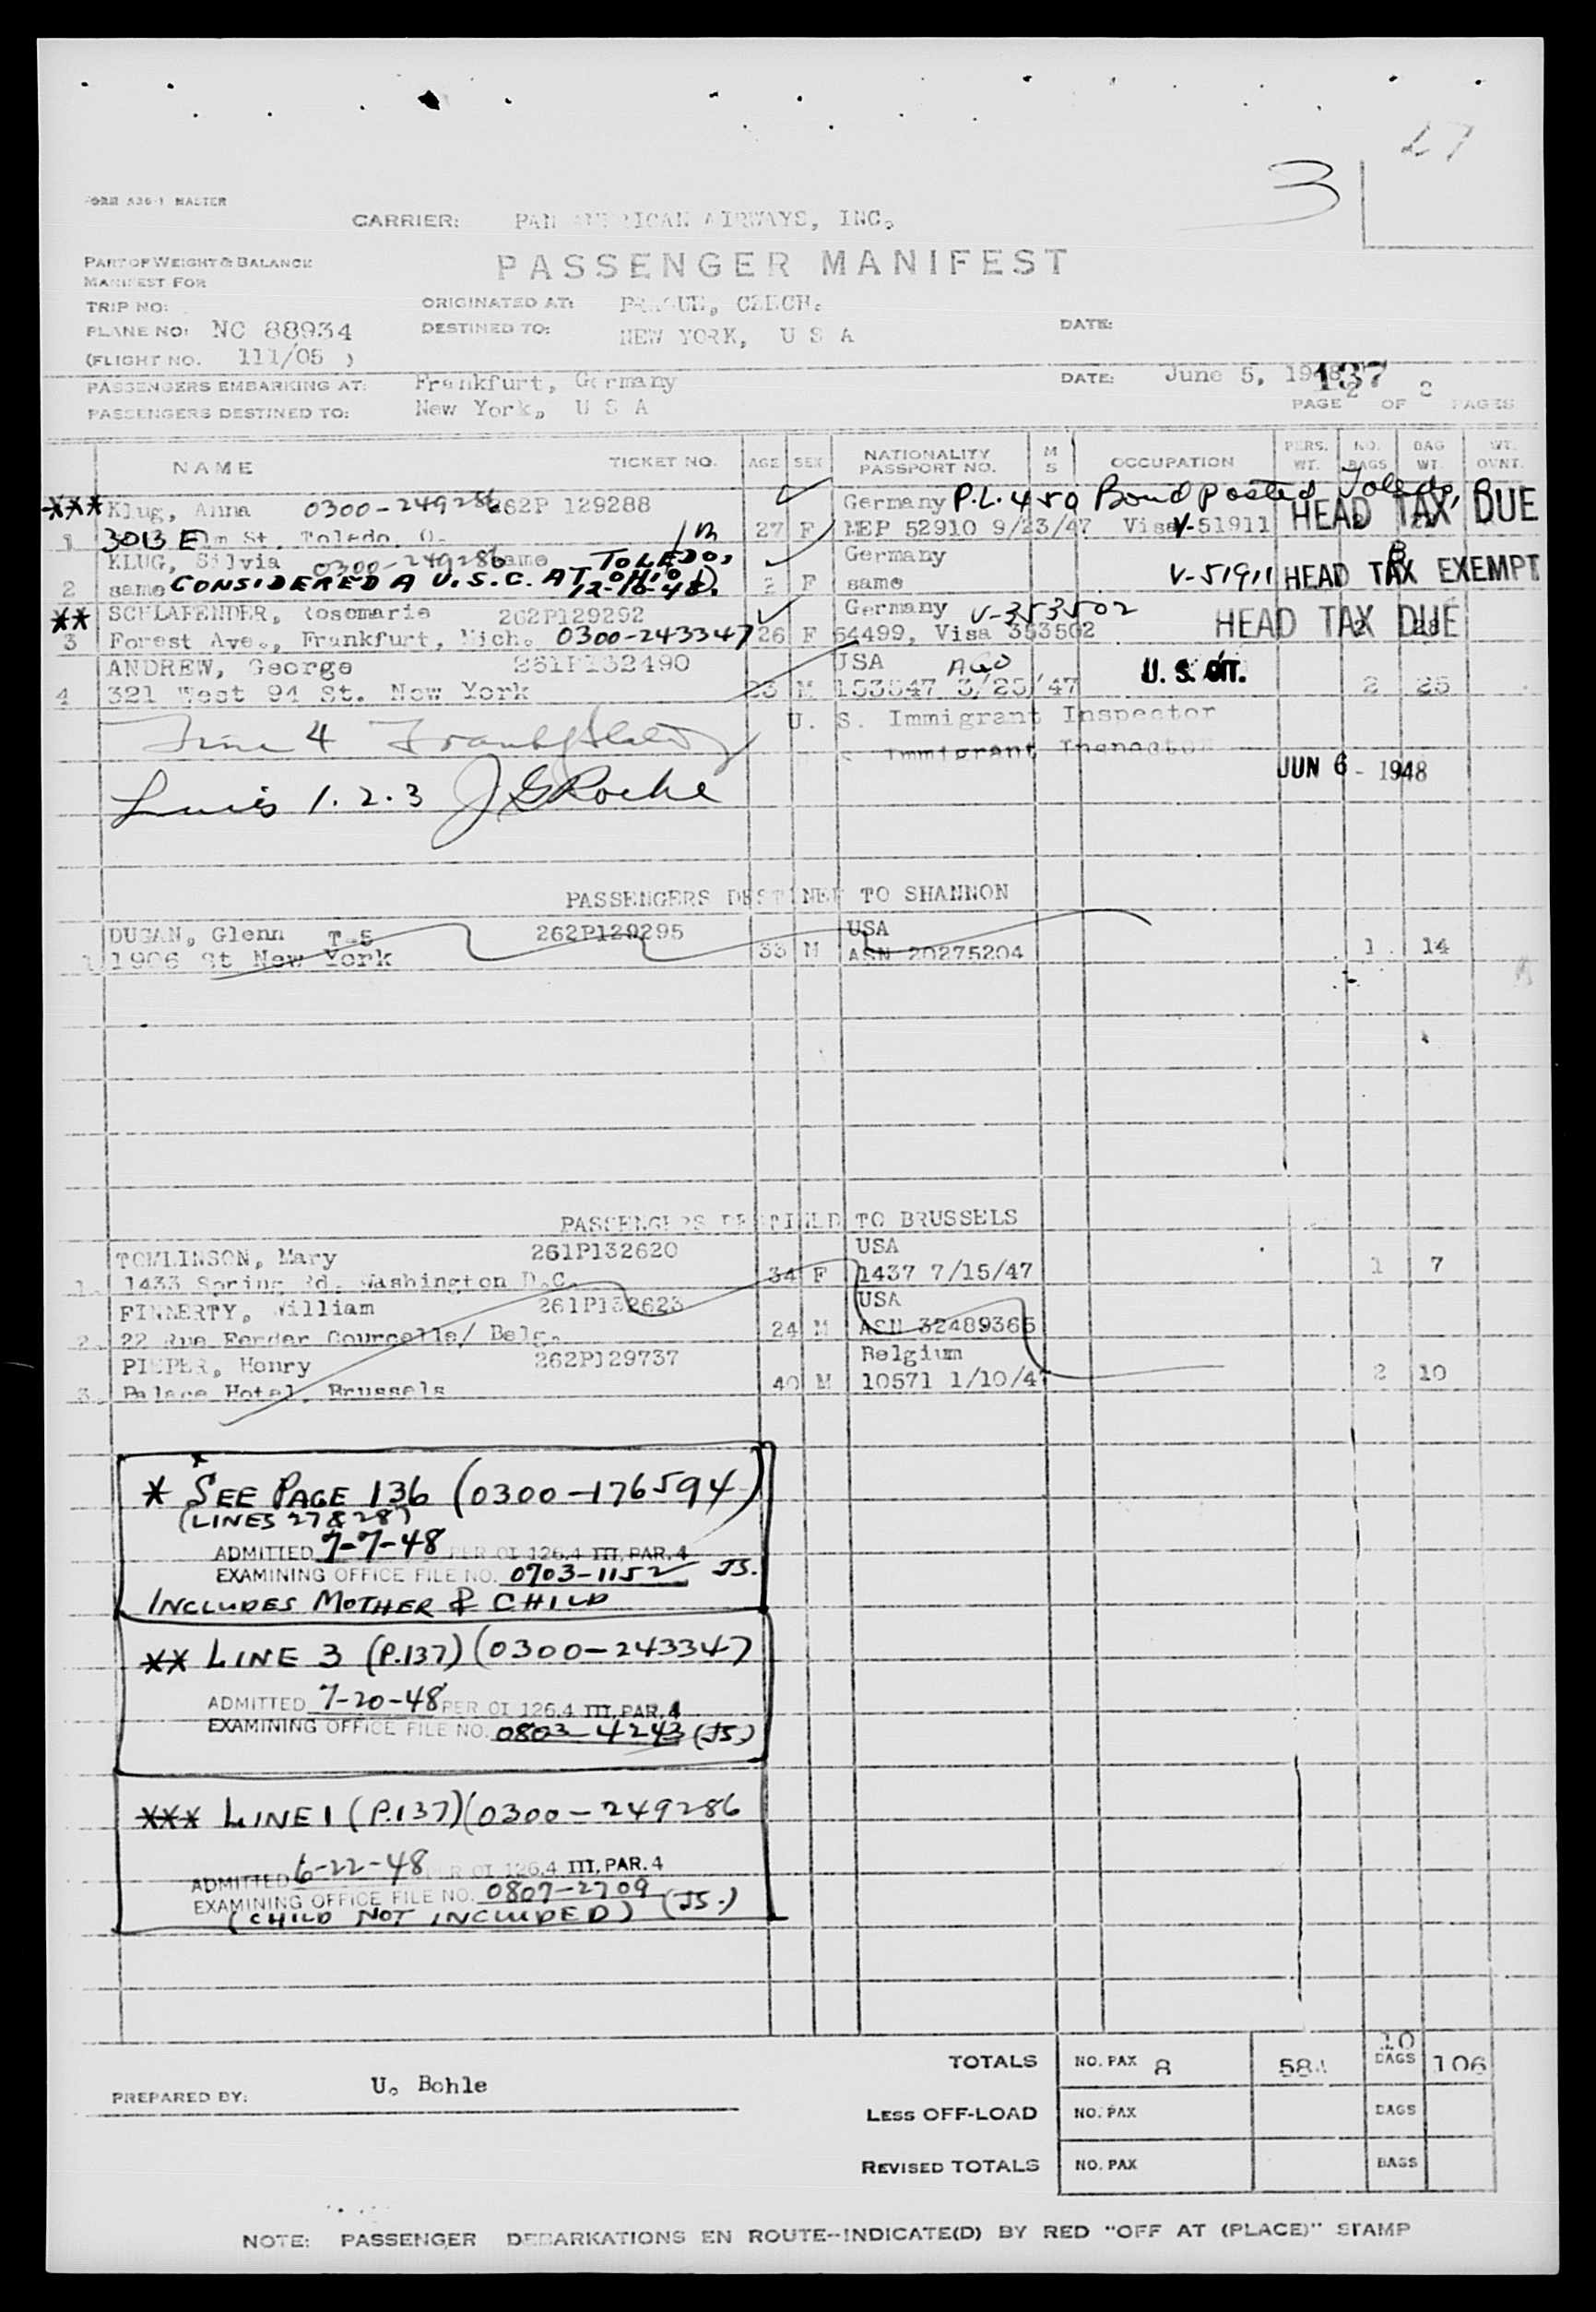 27
3
FORM 536-1 MASTER
CARRIER: PAN AMERICAN AIRWAYS, INC.
PART OF WEIGHT & BALANCE
MANIFEST FOR
PASSENGER MANIFEST
TRIP NO:
ORIGINATED AT: PRAGUE, CZECH.
PLANE NO: NC 88934
DESTINED TO: NEW YORK, U S A
DATE:
(FLIGHT NO. 111/05 )
PASSENGERS EMBARKING AT: Frankfurt, Germany
DATE: June 5, 1948
137
PASSENGERS DESTINED TO: New York, U S A
PAGE 2 OF 2 PAGES
NAME TICKET NO. AGE SEX NATIONALITY PASSPORT NO. M S OCCUPATION PERS. WT. NO. BAGS BAG WT. WT. OVNT.
*** Klug, Anna 0300-249286 262P 129288 Germany P.L. 450 Bond posted Toledo, O
1 3013 Elm St. Toledo, O. 27 F MEP 52910 9/23/47 Visa V-51911 HEAD TAX DUE
KLUG, Silvia 0300-249286 same TOLEDO, Germany
2 same CONSIDERED A U.S.C. AT OHIO 12-16-48. 2 F same V-51911 HEAD TAX EXEMPT
** SCHLAFENDER, Rosemarie 262P129292 Germany V-353502
3 Forest Ave., Frankfurt, Mich. 0300-243347 26 F 54499, Visa 353502 HEAD TAX DUE
ANDREW, George 261P132490 USA AGO
4 321 West 94 St. New York 23 M 153547 3/25/47 U. S. CIT. 2 25
U. S. Immigrant Inspector
Line 4
S. Immigrant Inspector
JUN 6 - 1948
Lines 1. 2. 3 J G Roche
PASSENGERS DESTINED TO SHANNON
DUGAN, Glenn T-5 262P129295 USA
1 1906 St New York 33 M ASN 20275204 1 14
PASSENGERS DESTINED TO BRUSSELS
TOMLINSON, Mary 261P132620 USA
1. 1433 Spring Rd. Washington D.C. 34 F 1437 7/15/47 1 7
FINNERTY, William 261P132623 USA
2. 22 Rue Ferder Courcelle/ Belg. 24 M ASN 32489366
PIEPER, Henry 262P129737 Belgium
3. Palace Hotel, Brussels 40 M 10571 1/10/47 2 10
* SEE PAGE 136 (0300-176594)
(LINES 27 & 28)
ADMITTED 7-7-48 PER OI 126.4 III, PAR. 4
EXAMINING OFFICE FILE NO. 0703-1152 JS.
INCLUDES MOTHER & CHILD
** LINE 3 (P.137) (0300-243347
ADMITTED 7-20-48 PER OI 126.4 III, PAR. 4
EXAMINING OFFICE FILE NO. 0803-4243 (JS.)
*** LINE 1 (P.137) (0300-249286
ADMITTED 6-22-48 PER OI 126.4 III, PAR. 4
EXAMINING OFFICE FILE NO. 0807-2709
(CHILD NOT INCLUDED) (JS.)
TOTALS NO. PAX 8 584 10 BAGS 106
PREPARED BY: U. Bohle
LESS OFF-LOAD NO. PAX BAGS
REVISED TOTALS NO. PAX BAGS
NOTE: PASSENGER DEBARKATIONS EN ROUTE--INDICATE(D) BY RED "OFF AT (PLACE)" STAMP